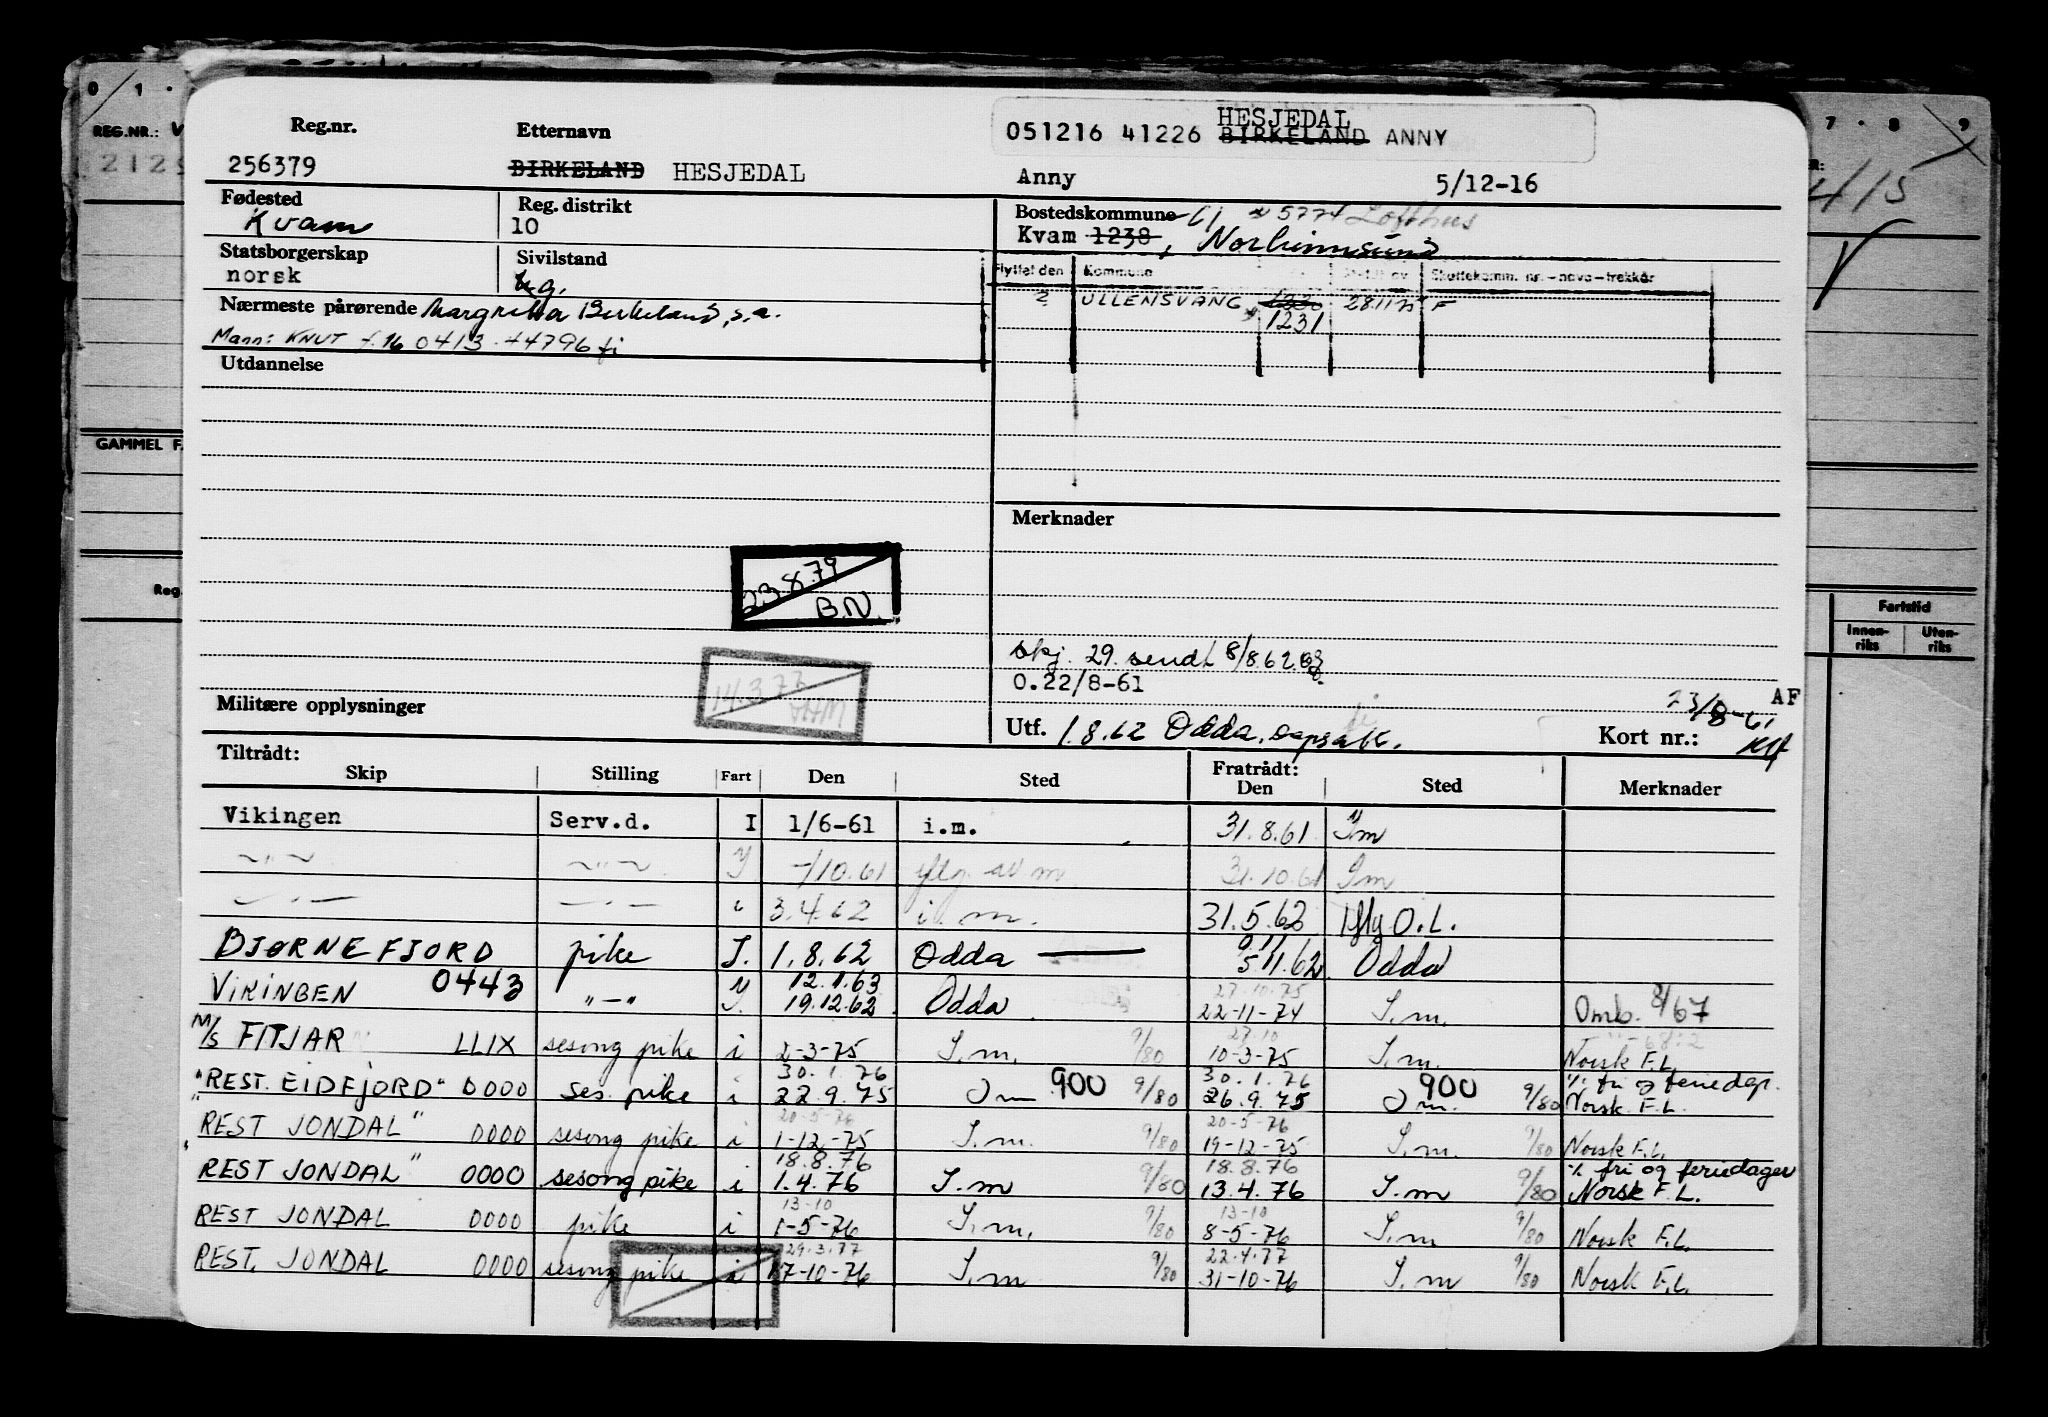 0 1
REG.NR.: V
2125
GAMMEL F.
Reg.
7 • 8 9
415
Fartstid
Innen-riks Uten-riks
HESJEDAL
051216 41226 BIRKELAND ANNY
Reg.nr. Etternavn
256379 BIRKELAND HESJEDAL Anny 5/12-16
Fødested Kvam Reg. distrikt 10
Bostedskommune 5774 Lofthus
Kvam 1238, Norheimsund
Statsborgerskap norsk Sivilstand ug.
Flyttet den Kommune Skattekomm. nr. - navn - trekkår
2 ULLENSVANG 1230 281175 F
1231
Nærmeste pårørende Margretha Birkeland, s.a.
Mann: KNUT f. 16 0413 44796 fi
Utdannelse
Merknader
23.8.79
B.N.
14.3.77
skj. 29. sendt 8/8.62.
0.22/8-61
23/8-61 AF
Militære opplysninger
Utf. 1.8.62 Odda. Kort nr.:
Tiltrådt: Fratrådt:
Skip Stilling Fart Den Sted Den Sted Merknader
Vikingen Serv.d. I 1/6-61 i.m. 31.8.61 I.m
-"- -"- -/10.61 iflg. av m 31.10.61 I m
-"- -"- 3.4.62 i. m. 31.5.62 Iflg O.L.
BJØRNEFJORD pike I. 1.8.62 Odda 5.11.62 Odda
VIKINGEN 0443 -"- 12.1.63 27.10.75
19.12.62 Odda 22-11-74 I.m. Omb. 8/67
M/S FITJAR LLIX sesong pike i 2-3-75 I.m. 9/80 27.10
10-3-75 I.m. Norsk F.L.
"REST. EIDFJORD" 0000 ses. pike i 30.1.76 900 30.1.76 900 % fri og feriedager.
22.9.75 I m 9/80 26.9.75 I m. 9/80 Norsk F.L.
"REST JONDAL" 0000 sesong pike i 20-5-76 20-5-76
1-12-75 I.m. 9/80 19-12-75 I.m. 9/80 Norsk F.L.
"REST JONDAL" 0000 sesong pike i 18.8.76 18.8.76 % fri og feriedager
1.4.76 I.m 9/80 13.4.76 I.m 9/80 Norsk F.L.
REST JONDAL 0000 pike i 13-10 13-10
1-5-76 I.m. 9/80 8-5-76 I.m 9/80 Norsk F.L.
REST. JONDAL 0000 sesong pike i 29.3.77 22.4.77
17-10-76 I.m 9/80 31-10-76 I.m 9/80 Norsk F.L.